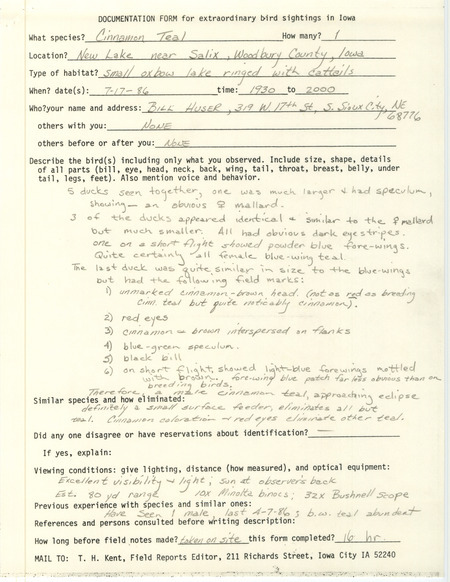 DOCUMENTATION FORM for extraordinary bird sightings in Iowa
What species? Cinnamon Teal How many? 1
Location? New Lake near Salix, Woodbury County, Iowa
Type of habitat? Small oxbow lake ringed with cattails
When? date(s): 7-17-86 time: 1930 to 2000
Who?your name and address: BILL HUSER, 319 W. 17th St, S. Sioux City, NE 68776
others with you: NONE
others before or after you: NONE
Describe the bird(s) including only what you observed. Include size, shape, details
of all parts (bill, eye, head, neck, back, wing, tail, throat, breast, belly, under
tail, legs, feet). Also mention voice and behavior.
5 ducks seen together, one was much larger & had speculum,
showing — an obvious ♀ mallard.
3 of the ducks appeared identical & similar to the ♀ mallard
but much smaller. All had obvious dark eyestripes.
one on a short flight showed powder blue fore-wings.
Quite certainly all female blue-wing teal.
The last duck was quite similar in size to the blue-wings
but had the following field marks:
1) unmarked cinnamon-brown head. (not as red as breeding
cinn. teal but quite noticably cinnamon).
2) red eyes
3) cinnamon & brown interspersed on flanks
4) blue-green speculum.
5) black bill
6) on short flight, showed light-blue forewings mottled
with brown, forewing blue patch far less obvious than on
breeding birds.
Therefore a male cinnamon teal, approaching eclipse
Similar species and how eliminated:
definitely a small surface feeder, eliminates all but
teal. Cinnamon coloration & red eyes eliminate other teal.
Did any one disagree or have reservations about identification? —
If yes, explain:
Viewing conditions: give lighting, distance (how measured), and optical equipment:
Excellent visibility & light; sun at observer's back
Est. 80 yd range 10x Minolta binocs; 32x Bushnell scope
Previous experience with species and similar ones:
Have seen 1 male, last 4-7-86; b.w. teal abundant
References and persons consulted before writing description:
How long before field notes made? taken on site this form completed? 16 hr.
MAIL TO: T. H. Kent, Field Reports Editor, 211 Richards Street, Iowa City IA 52240